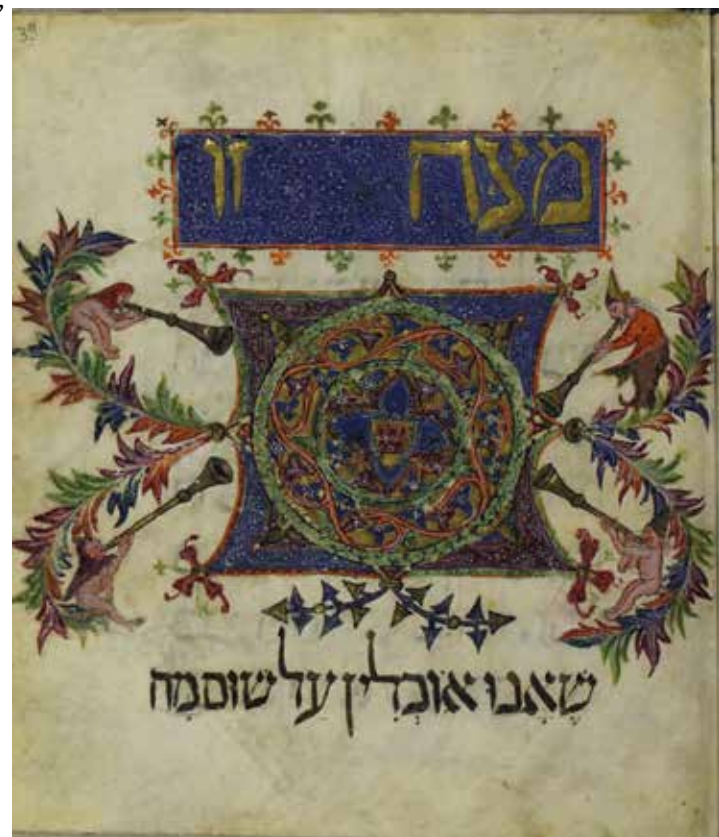 מַצָּה זו
שֶׁאָנוּ אוֹכְלִין עַל שום מָה